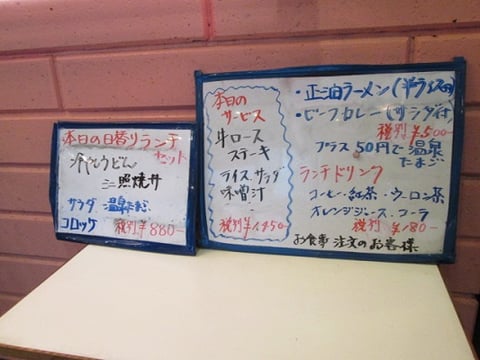 本日の日替りランチ
セット
冷やしうどん
ミニ照焼丼
サラダ 温泉たまご
コロッケ 税別¥880-
本日の
サービス
牛ロース
ステーキ
ライス サラダ
味噌汁
税別¥1,450-
・正油ラーメン(半ライス付)
・ビーフカレー(サラダ付)
税別¥500-
プラス50円で温泉
たまご
ランチドリンク
コーヒー・紅茶・ウーロン茶
オレンジジュース・コーラ
税別¥180-
お食事注文のお客様